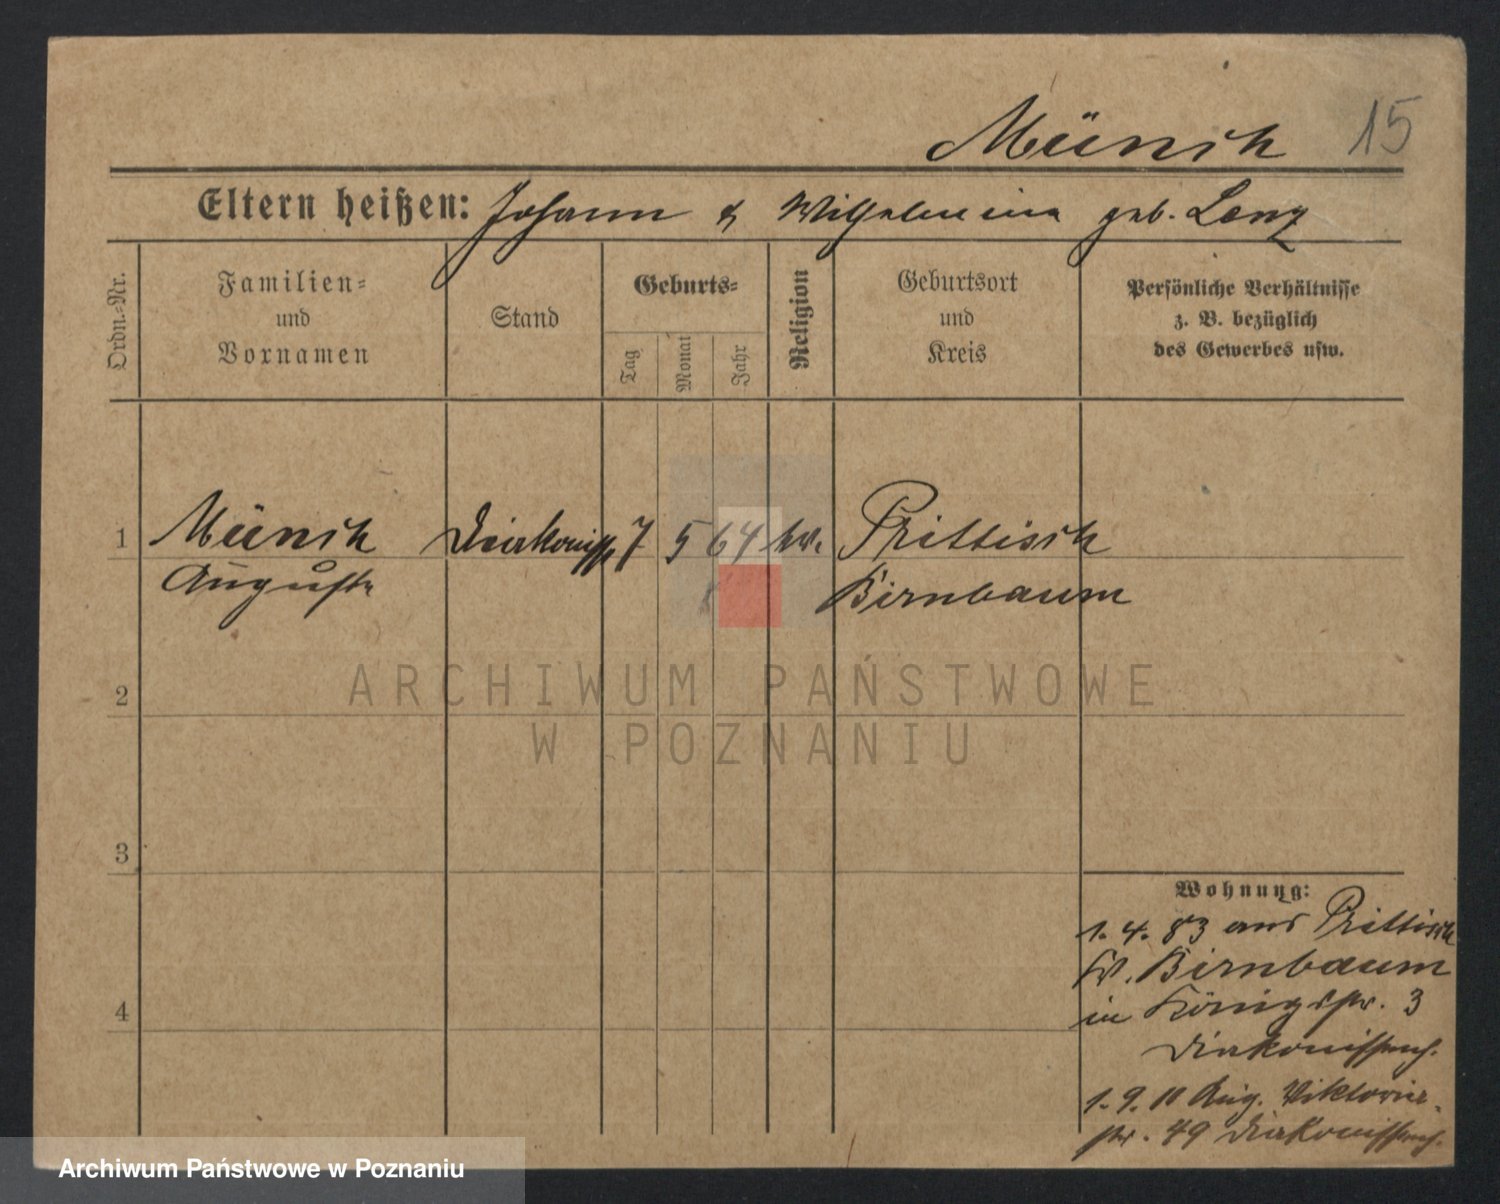 Münch 15
Eltern heißen: Johann & Wilhelmina geb. Lenz
Ordn.-Nr.
Familien-
und
Vornamen
Stand
Geburts-
Tag
Monat
Jahr
Religion
Geburtsort
und
Kreis
Persönliche Verhältnisse
z. B. bezüglich
des Gewerbes usw.
1 Münch Diakoniss 7 5 64 ev. Prittisch
Auguste Birnbaum
2
3
4
Wohnung:
1. 4. 83 aus Prittisch
Kr. Birnbaum
in Königstr. 3
Diakonissenh.
1. 9. 10 Aug. Viktoria-
str. 49 Diakonissenh.
ARCHIWUM PAŃSTWOWE
W POZNANIU
Archiwum Państwowe w Poznaniu